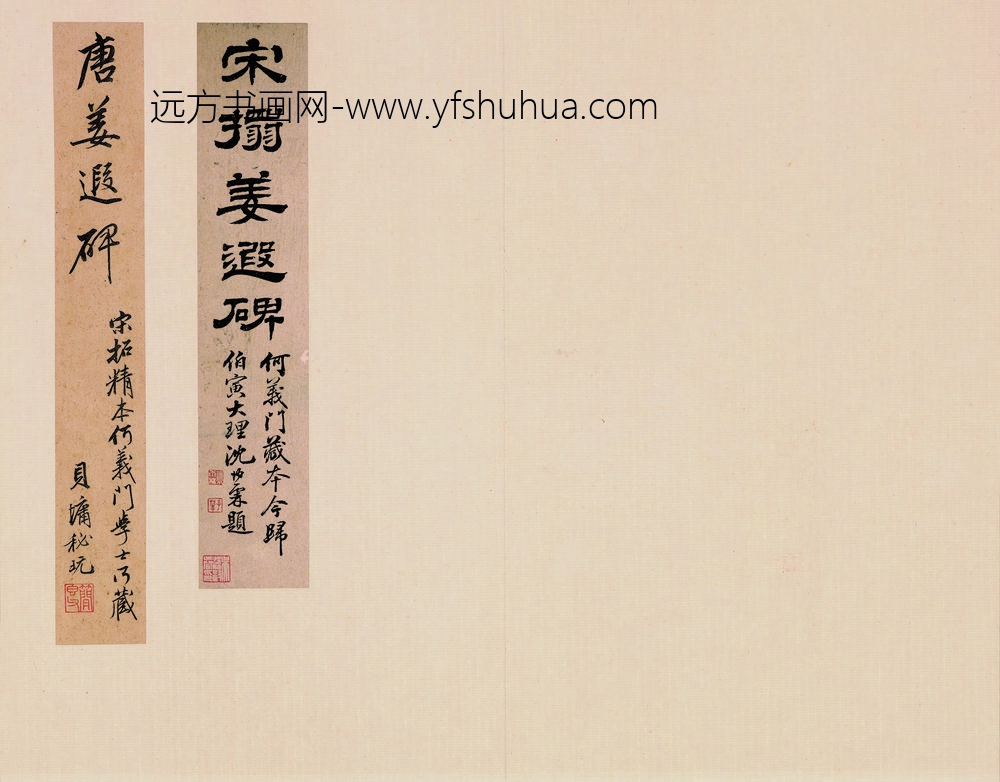 远方书画网-www.yfshuhua.com
宋搨姜遐碑
何義門藏本今歸
伯寅大理沈树霖題
唐姜遐碑
宋拓精本何義門學士所藏
貝墉秘玩